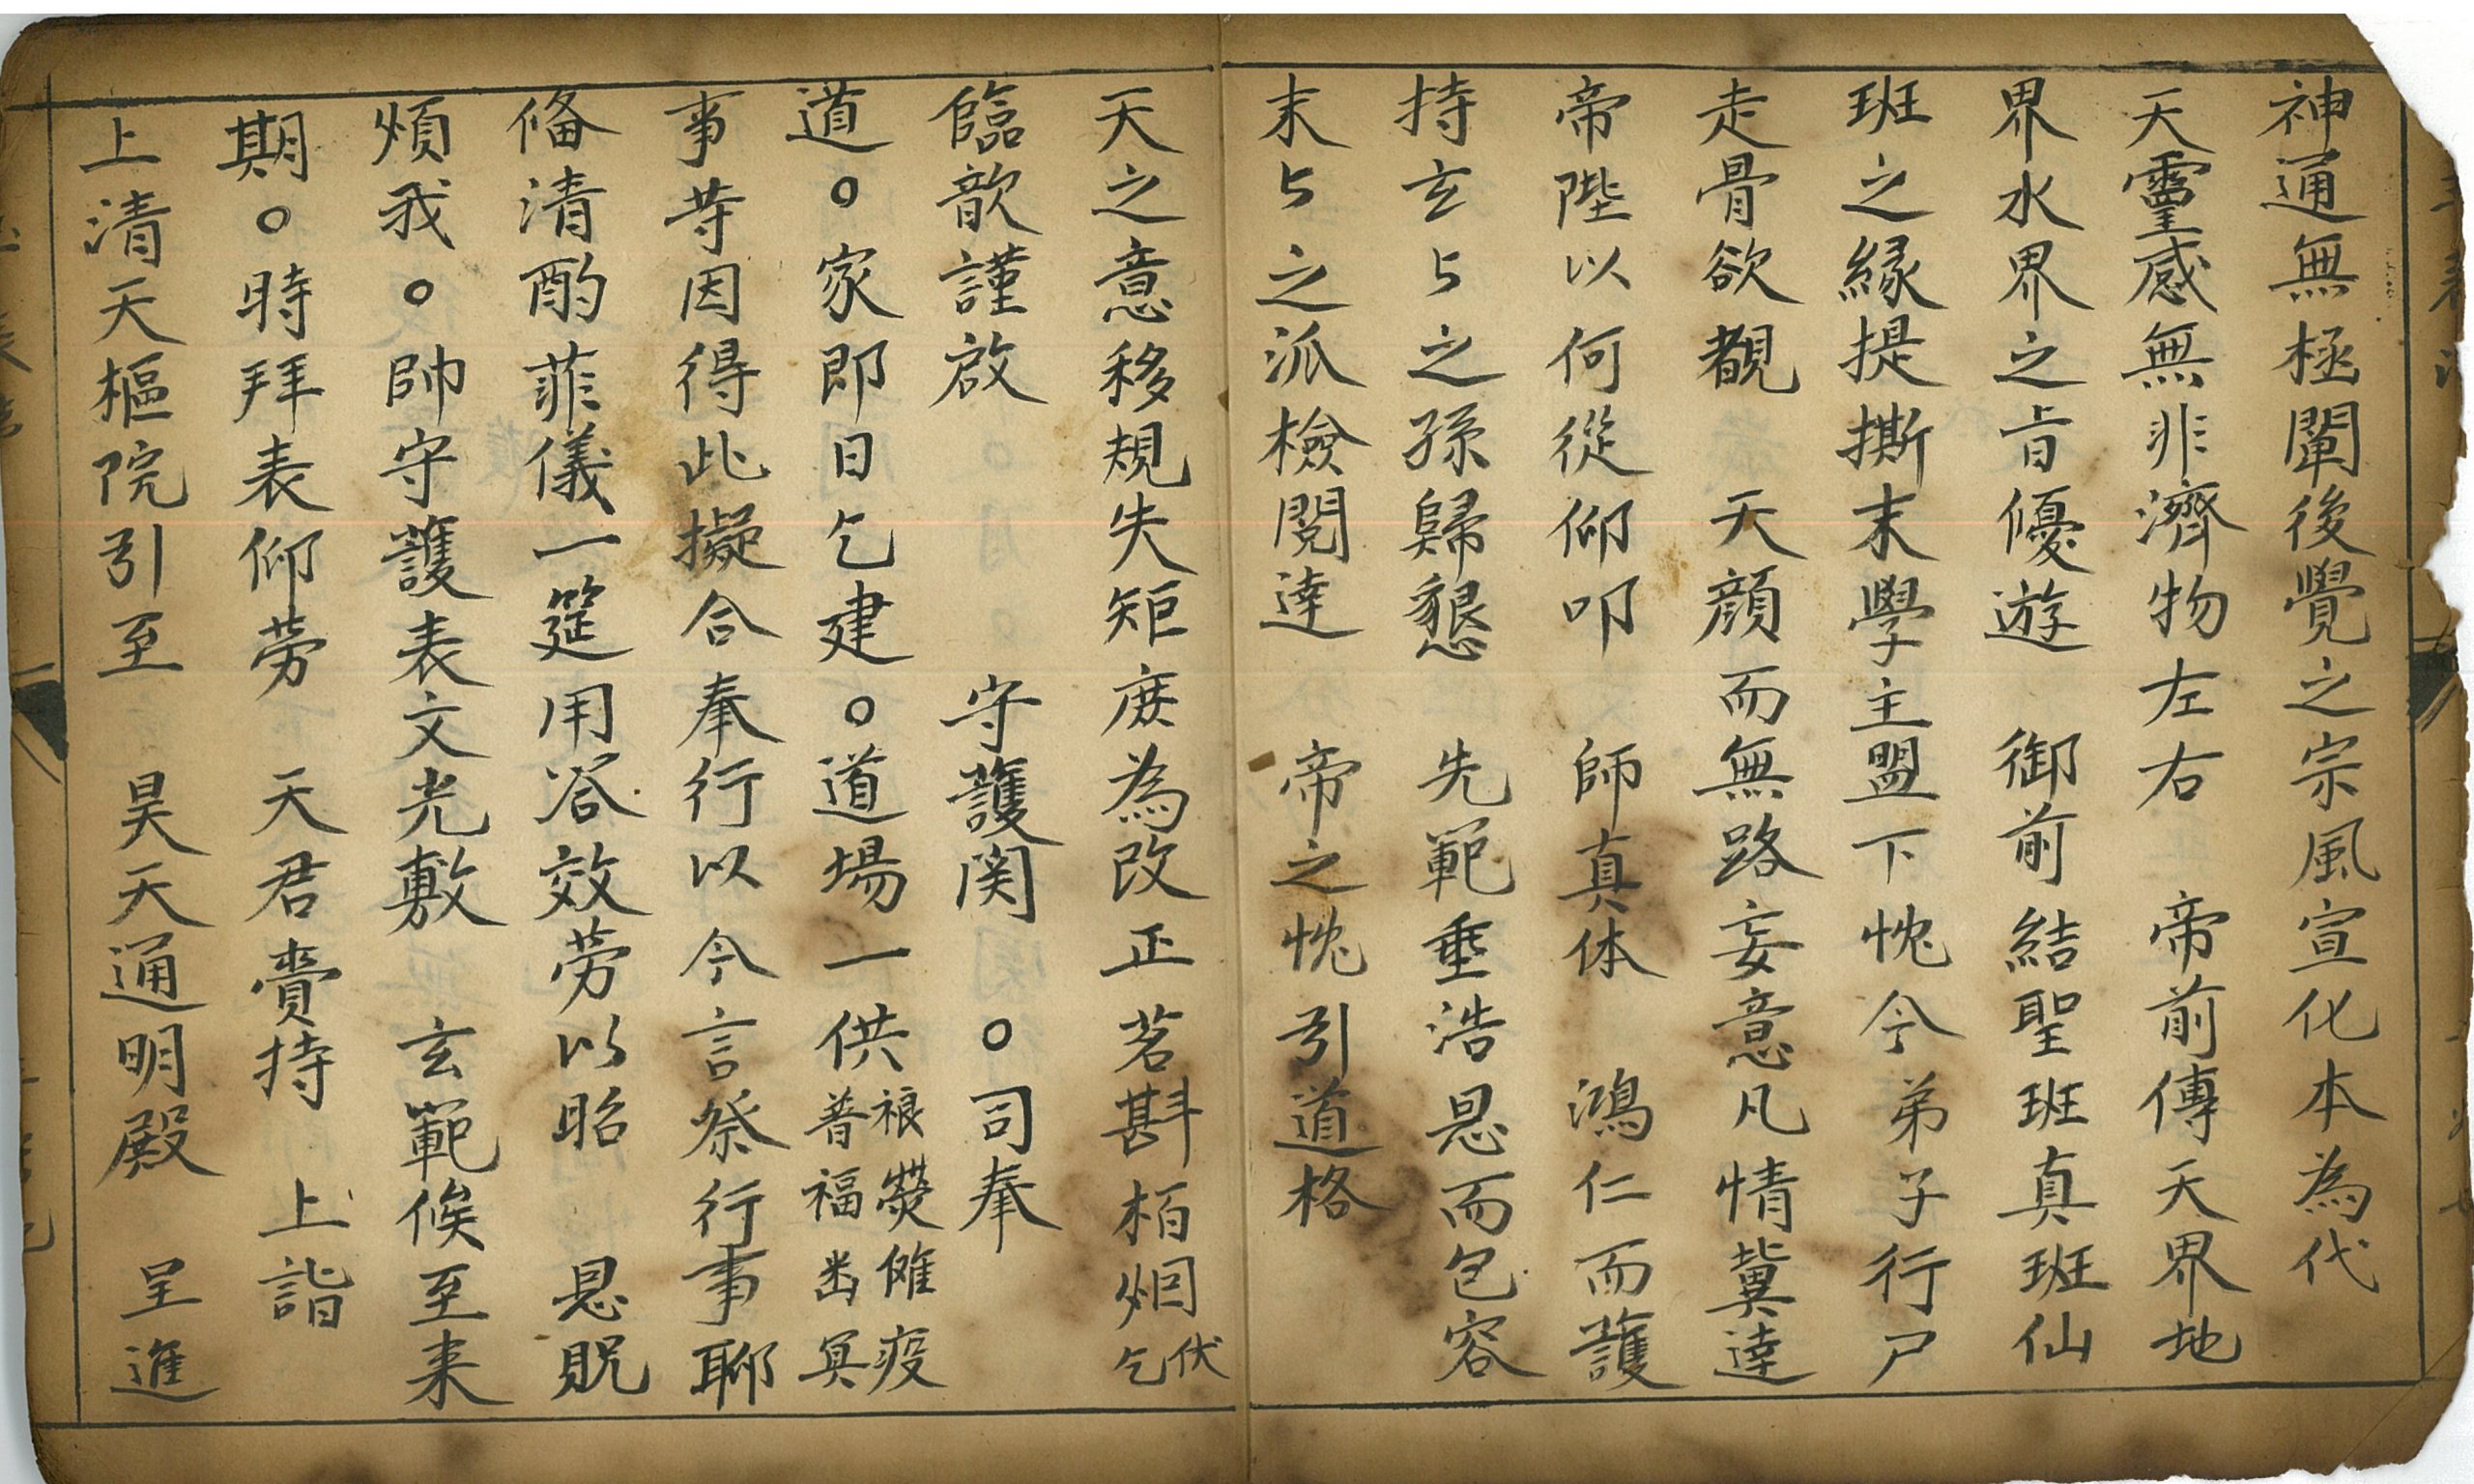 神通無極闡後覺之宗風宣化本為代
天靈感無非濟物左右　帝前傳天界地
界水界之旨優遊　御前結聖班真班仙
班之緣提撕末學主盟下悗今弟子行尸
走骨欲覩　天顔而無路妄意凡情冀達
帝陛以何從仰叩　師真体　鴻仁而護
持玄〻之孫歸懇　先範垂浩恩而包容
末〻之派檢閱達　帝之悗引道格
天之意移規失矩庶為改正茗斟栢烟伏乞
臨歆謹啟　守護関○司奉
道○家即日乞建○道場一供禳熒傩疫普福幽冥
事苛因得此擬合奉行以今言祭行事聊
備清酌菲儀一筵用答效劳以昭　恩貺
煩我○帥守護表文光敷　玄範候至来
期○時拜表仰劳　天君賫持　上詣
上清天樞院引至　昊天通明殿　呈進